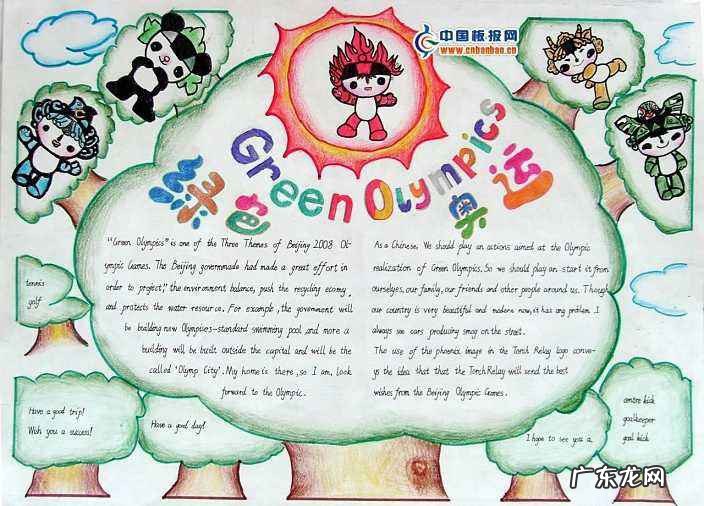 中国板报网
www.cnbanbao.cn
Green Olympics
绿色奥运
"Green Olympics" is one of the Three Themes of Beijing 2008 Ol-
ympic Games. The Beijing governmade had made a great effort in
order to project," the environment balance, push the recycling econmy,
and protects the water resource. For example, the government will
be building new Olympics-standard swimming pool, and more a
building will be built outside the capital and will be the
called 'Olymp City'. My home is there, so I am, look
forward to the Olympic.
As a Chinese, We should play an actions aimed at the Olympic
realization of Green Olympics. So we should play an start it from
ourselyes, our family, our friends and other people around us. Though
our country is very beautiful and modern now, it has any problem. I
always see cars producing smog on the street.
The use of the phoenix image in the Torch Relay logo conve-
ys the idea that that the Torch Relay will send the best
wishes from the Beijing Olympic Games.
tennis
golf
Have a good trip!
Wish you a success!
Have a good day!
I hope to see you a
centre kick
goalkeeper
goal kick
广东龙网